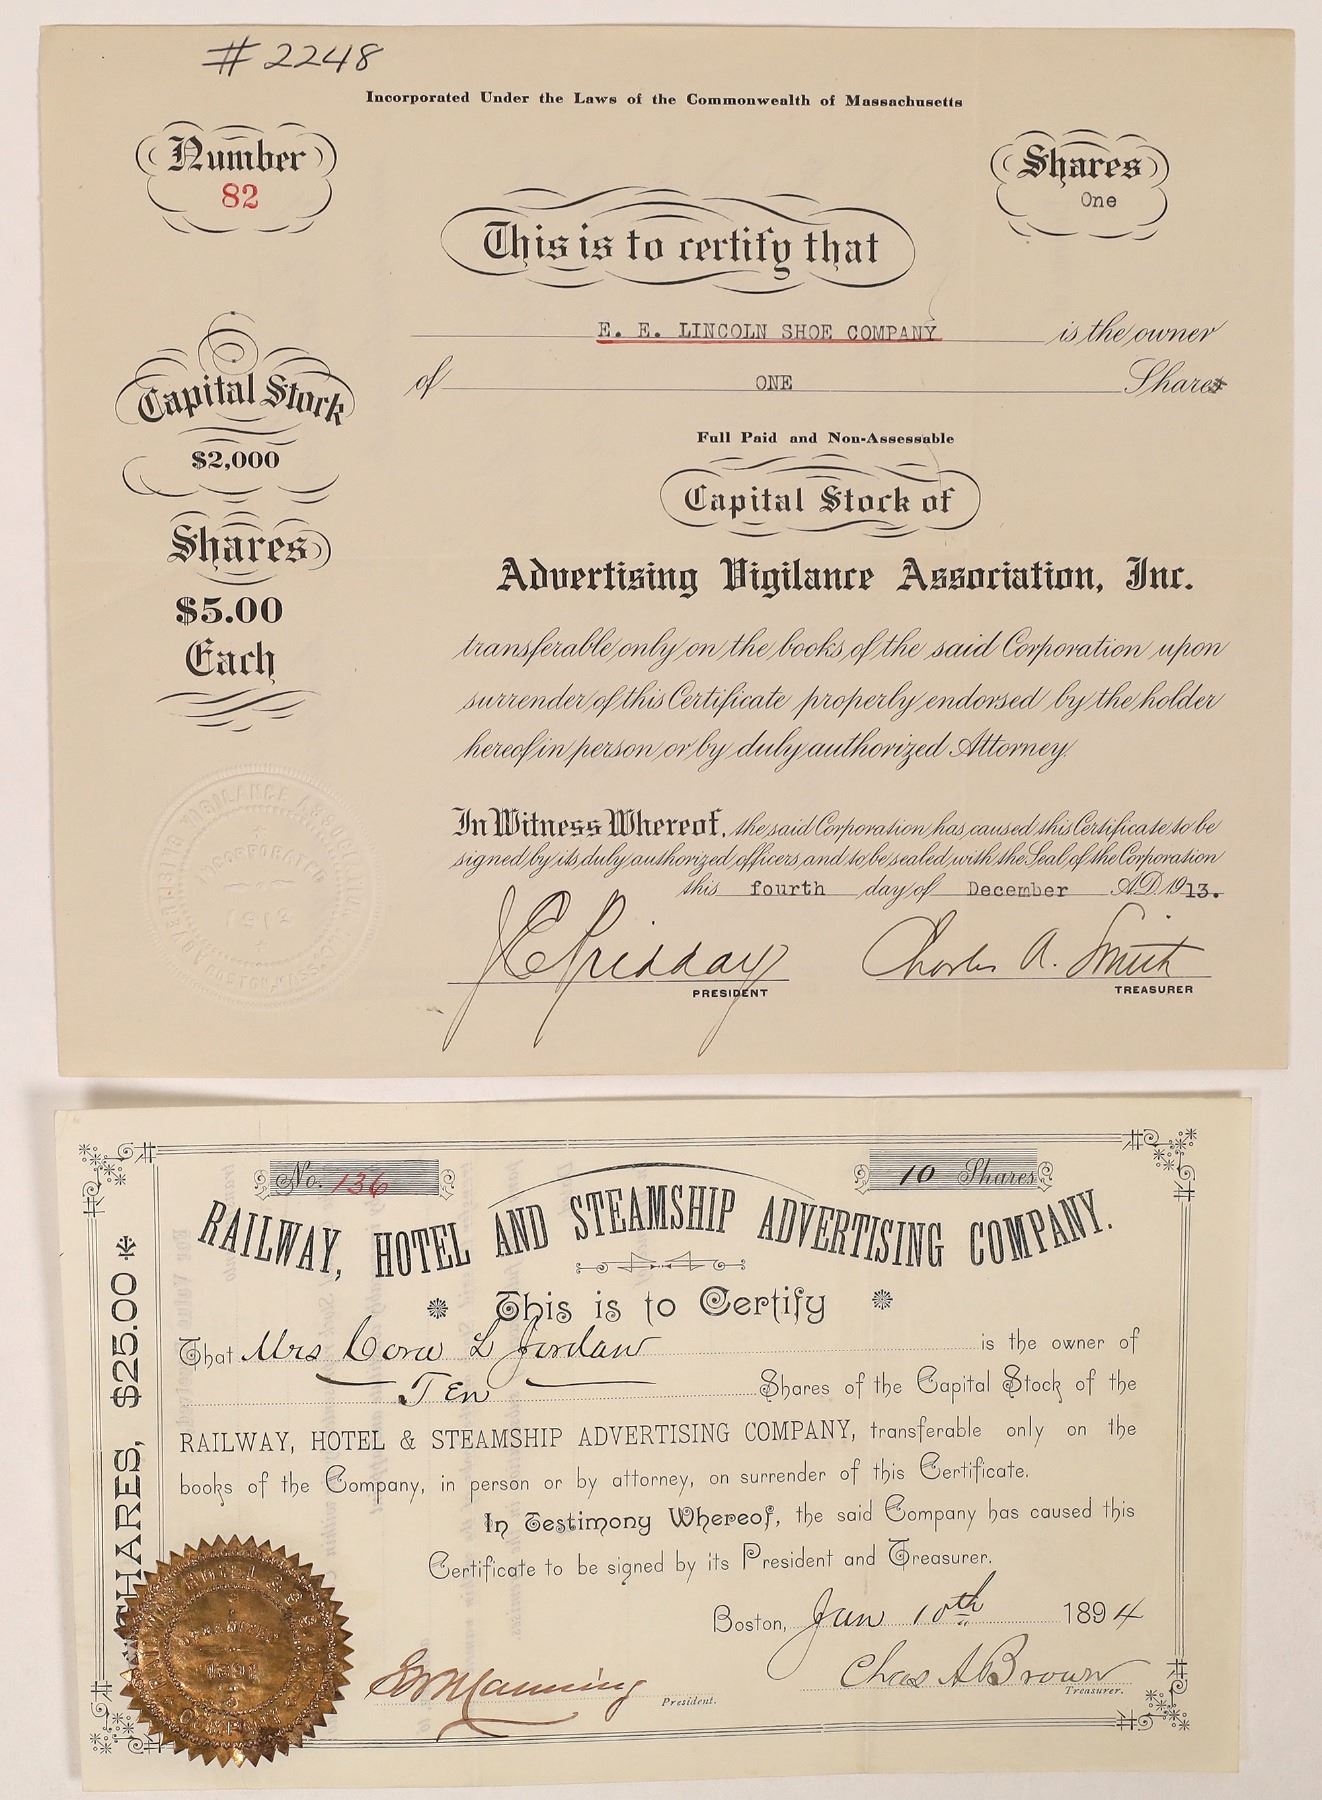 #2248
Incorporated Under the Laws of the Commonwealth of Massachusetts
Number
82
Shares
One
This is to certify that
E. E. LINCOLN SHOE COMPANY is the owner
of ONE Shares
Capital Stock
$2,000
Shares
$5.00
Each
Full Paid and Non-Assessable
Capital Stock of
Advertising Vigilance Association, Inc.
transferable only on the books of the said Corporation upon
surrender of this Certificate properly endorsed by the holder
hereof in person or by duly authorized Attorney.
In Witness Whereof, the said Corporation has caused this Certificate to be
signed by its duly authorized officers and to be sealed with the Seal of the Corporation
this fourth day of December A.D. 1913.
ADVERTISING VIGILANCE ASSOCIATION
INCORPORATED
1913
BOSTON, MASS.
J E Pridday
PRESIDENT
Charles A. Smith
TREASURER
No. 136
10 Shares
RAILWAY, HOTEL AND STEAMSHIP ADVERTISING COMPANY.
This is to Certify
That Mrs Cora L Jordan is the owner of
Ten Shares of the Capital Stock of the
RAILWAY, HOTEL & STEAMSHIP ADVERTISING COMPANY, transferable only on the
books of the Company, in person or by attorney, on surrender of this Certificate.
In Testimony Whereof, the said Company has caused this
Certificate to be signed by its President and Treasurer.
Boston, Jan 10th 1894
Manning
President.
Chas A Brown
Treasurer.
SHARES, $25.00
RAILWAY HOTEL &
1891
COMPANY